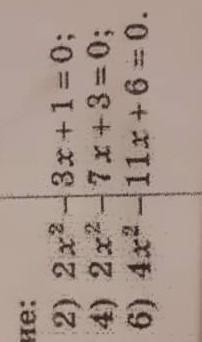 ие:
2) 2x² – 3x + 1 = 0;
4) 2x² – 7x + 3 = 0;
6) 4x² – 11x + 6 = 0.